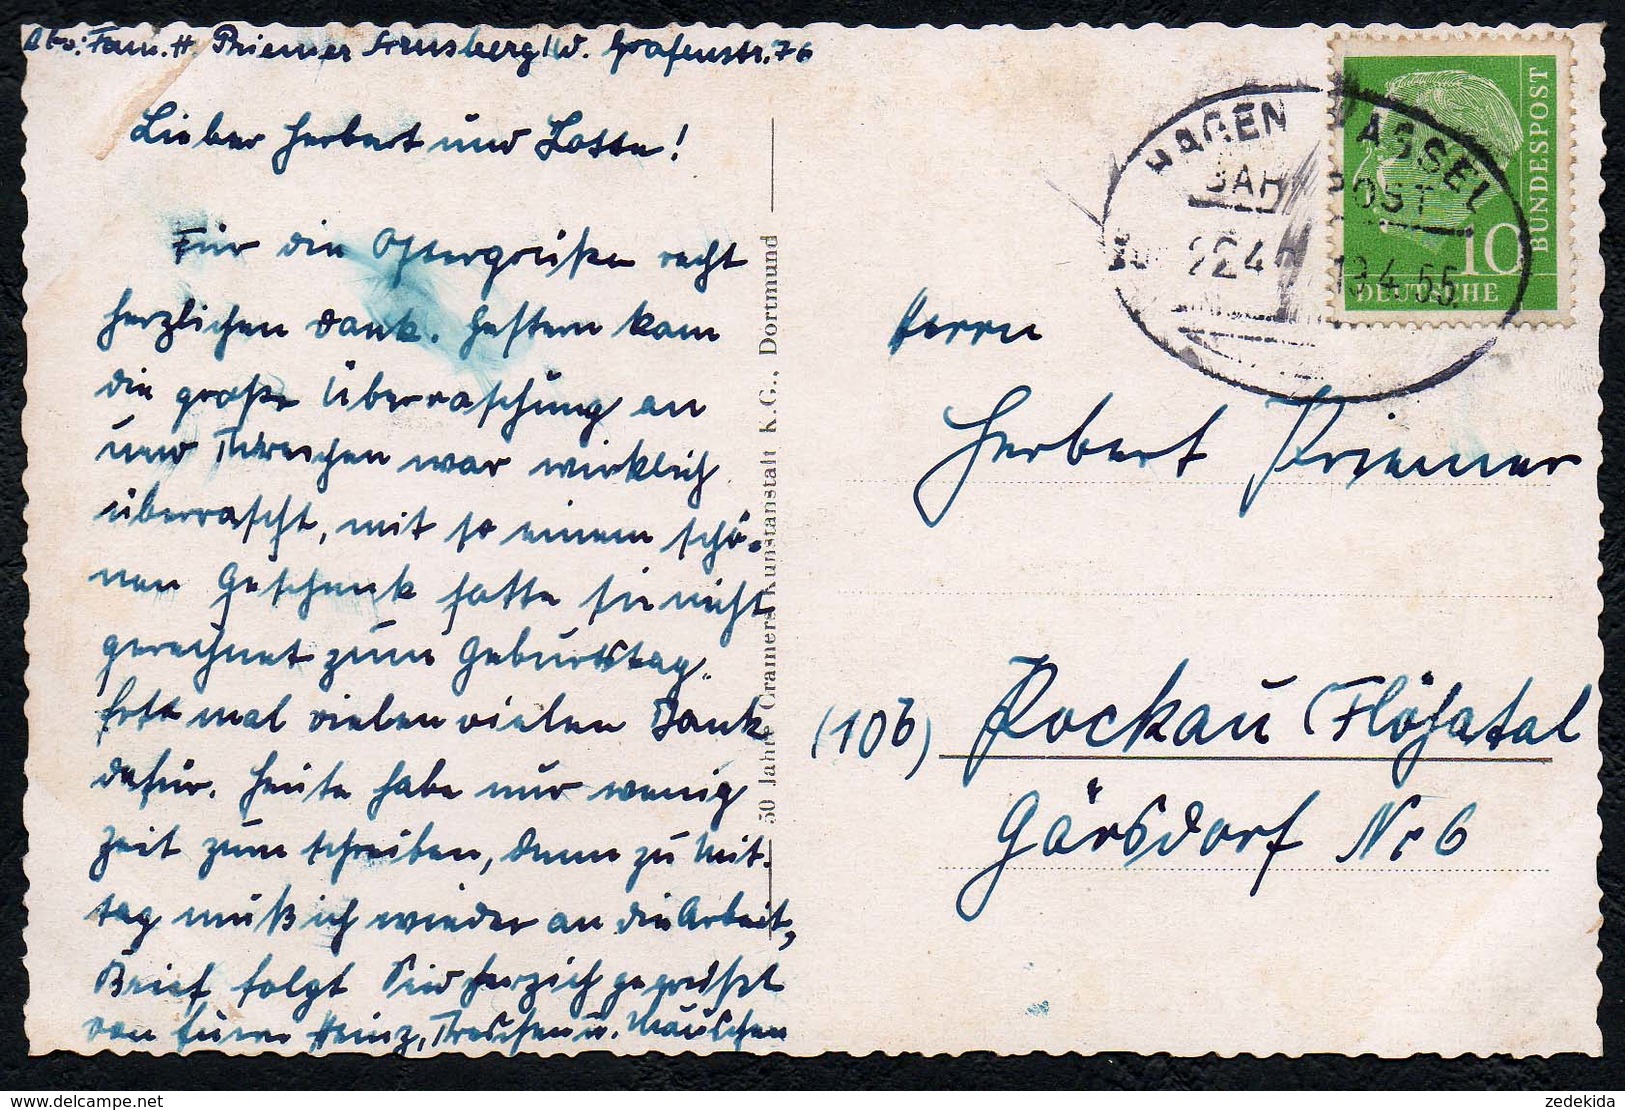 Abs: Fam. H. Priemer Arnsberg/W. Grafenstr. 76
Lieber Herbert und Lotte!
Für die Ostergrüße recht
herzlichen Dank. Gestern kam
die große Überraschung an
und war wirklich
überrascht, mit so einem schö-
nen Geschenk hatte sie nicht
gerechnet zum Geburtstag.
mal vielen vielen Dank
dafür. Heute habe nur wenig
Zeit zum schreiben, denn zu Mit-
tag muß ich wieder an die Arbeit,
Brief folgt Seid herzich gegrüßt
von Euren Heinz, u. Mäuschen
50 Jahre Cramers Kunstanstalt K.G., Dortmund
HAGEN KASSEL
BAHNPOST
224
13.4.55
BUNDESPOST
10
DEUTSCHE
Herrn
Herbert Priemer
(10b) Hockau Flöhatal
Görsdorf Nr 6
delcampe.net
zedekida